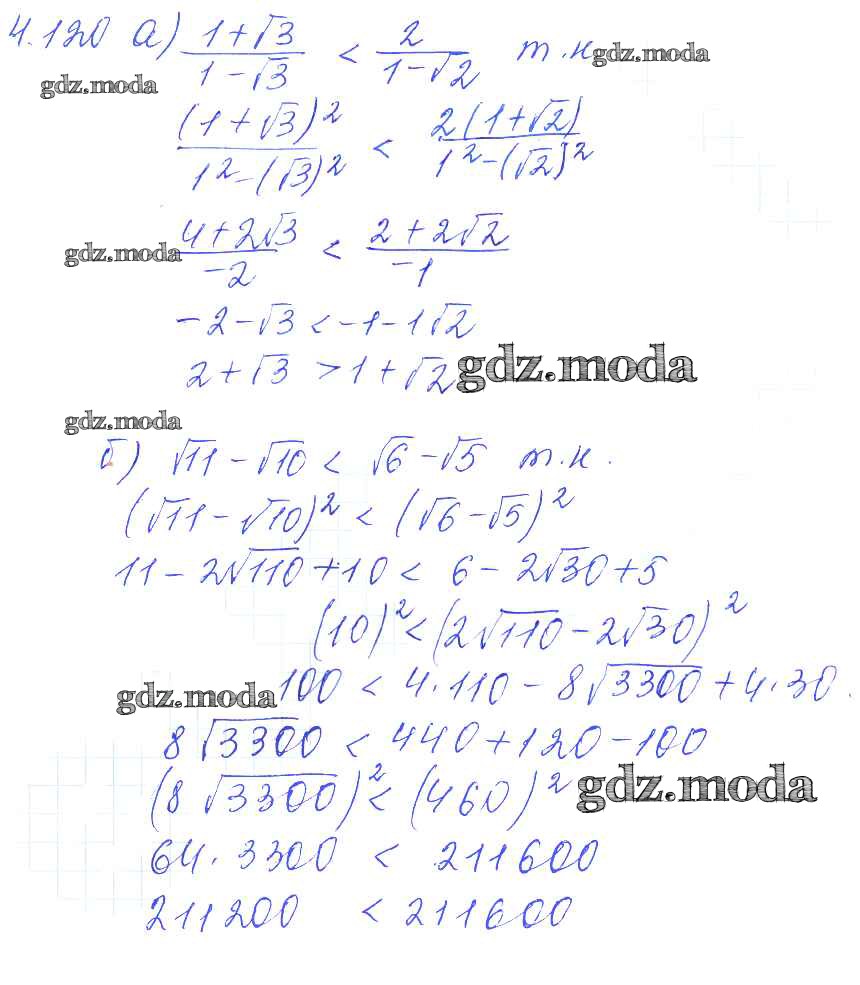 4.120 а) (1+√3)/(1-√3) < 2/(1-√2) т.к gdz.moda
gdz.moda
(1+√3)²/(1²-(√3)²) < 2(1+√2)/(1²-(√2)²)
gdz.moda (4+2√3)/(-2) < (2+2√2)/(-1)
-2-√3 < -1-1√2
2+√3 > 1+√2 gdz.moda
gdz.moda
б) √11-√10 < √6-√5 т.к.
(√11-√10)² < (√6-√5)²
11-2√110+10 < 6-2√30+5
(10)² < (2√110-2√30)²
gdz.moda 100 < 4·110-8√3300+4·30.
8√3300 < 440+120-100
(8√3300)² < (460)² gdz.moda
64·3300 < 211600
211200 < 211600